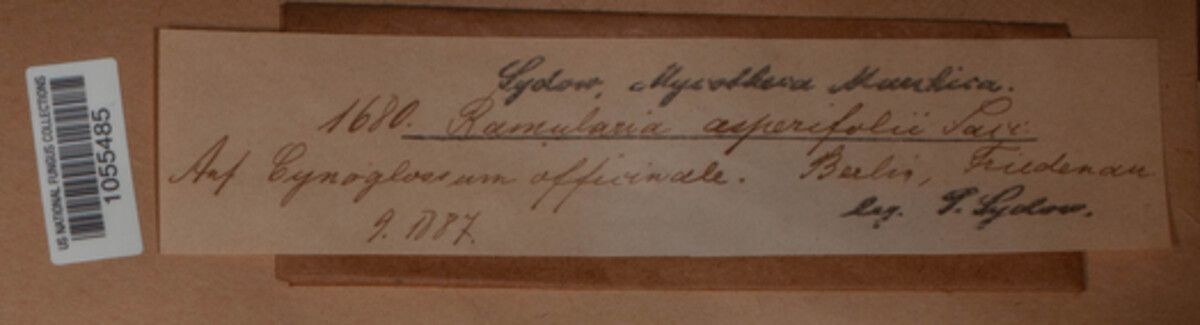 US NATIONAL FUNGUS COLLECTIONS
1055485
Sydow, Mycotheca Marchica.
1680. Ramularia asperifolii Sacc.
Auf Cynoglossum officinale. Berlin, Friedenau
9. 1887.
leg. P. Sydow.